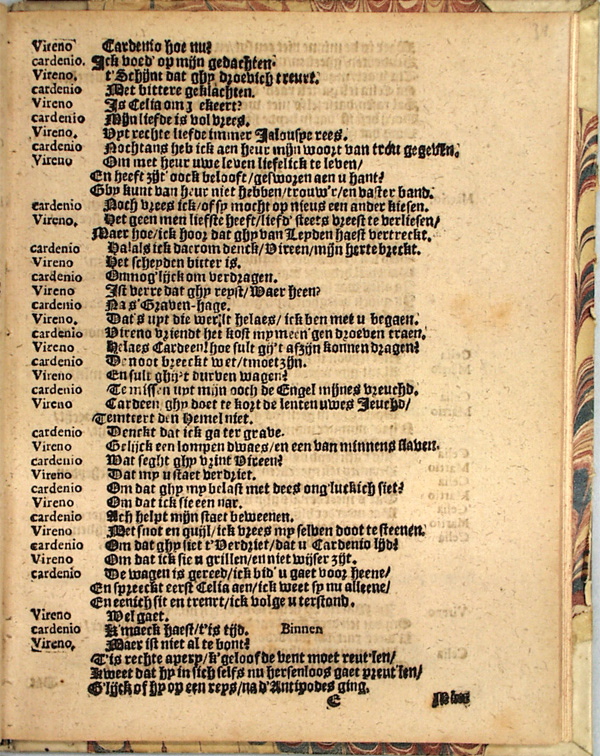 Vireno Cardenio hoe nu?
cardenio. Ick voed' op mijn gedachten.
Vireno. t'Schijnt dat ghy droevich treurt.
cardenio Met bittere geklachten.
Vireno Is Celia om j ekeert?
cardenio Mijn liefde is vol vrees.
Vireno. Uyt rechte liefde immer Jalousye rees.
cardenio Nochtans heb ick aen heur mijn woort van trou gegeven.
Vireno Om met heur uwe leven liefelick te leven/
En heeft zy't oock belooft/gesworen aen u hant?
Ghy kunt van heur niet hebben/trouw'r/en vaster band.
cardenio Noch vrees ick/of sy mocht op nieus een ander kiesen.
Vireno. Het geen men liefste heeft/liefd' steets vreest te verliesen/
Maer hoe/ick hoor dat ghy van Leyden haest vertreckt.
cardenio Ha!als ick daerom denck/Vireen/mijn herte breckt.
Vireno Het scheyden bitter is.
cardenio Onmog'lijck om verdragen.
Vireno Ist verre dat ghy reyst/Waer heen?
cardenio Na s'Graven-hage.
Vireno. Dat's uyt die werlt helaes/ick ben met u begaen.
cardenio Vireno vriendt het kost my meen'gen droeven traen.
Vireno Helaes Cardeen!hoe sult gij't afzijn konnen dragen?
cardenio De noot breeckt wet/tmoet zijn.
Vireno En sult ghy't durven wagen?
cardenio Te missen uyt mijn ooch de Engel mijnes vreuchd.
Vireno Cardeen ghy doet te kort de lenten uwes Jeuchd/
Temteert den Hemel niet.
cardenio Denckt dat ick ga ter grave.
Vireno Gelijck een lompen dwaes/en een van minnens slaven.
cardenio Wat seght ghy vrint Vireen?
Vireno Dat my u staet verdriet.
cardenio Om dat ghy my belast met dees ong'luckich siet?
Vireno Om dat ick sie een nar.
cardenio Ach helpt mijn staet beweenen.
Vireno Met snot en quijl/ick vrees my selven doot te steenen.
cardenio Om dat ghy siet t'Verdriet/dat u Cardenio lijd?
Vireno Om dat ick sie u grillen/en niet wijser zijt.
cardenio De wagen is gereed/ick bid' u gaet voor heene/
En spreeckt eerst Celia aen/ick weet sy nu alleene/
En eenich sit en treurt/ick volge u terstond.
Vireno Wel gaet.
cardenio K'maeck haest/t'is tijd. Binnen
Vireno. Maer ist niet al te bont?
T'is rechte apery/k'geloof de vent moet reut'len/
K'weet dat hy in sich selfs nu hersenloos gaet preut'len/
G'lijck of hy op een reys/na d'Antipodes ging.
C